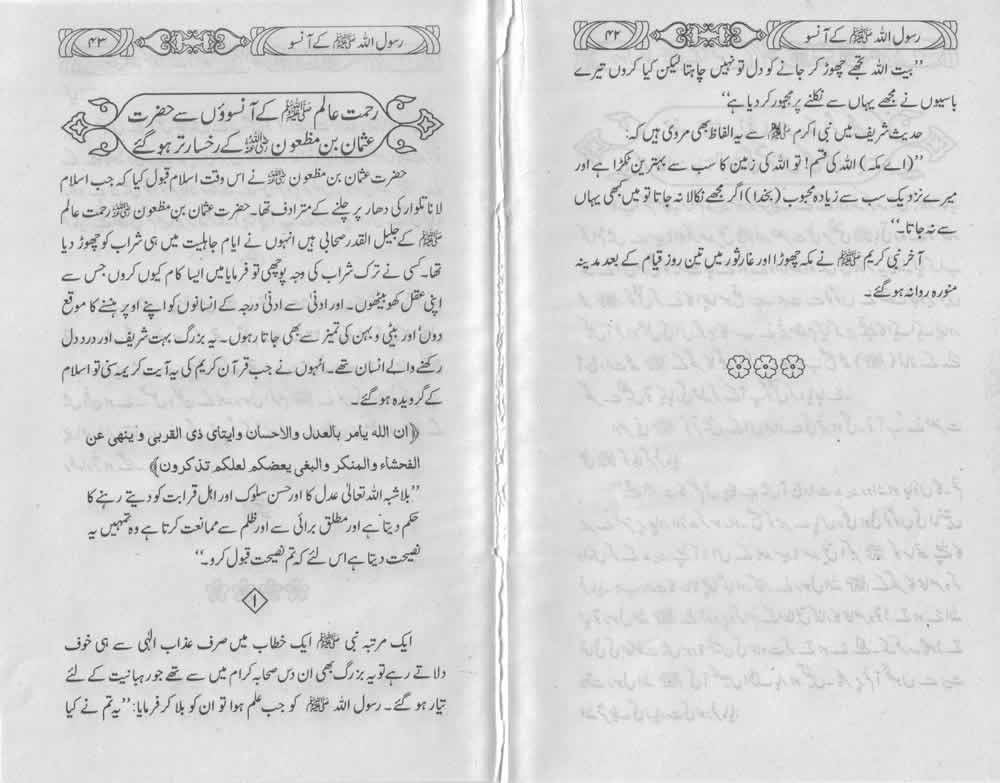 رسول اللہ ﷺ کے آنسو
۴۲
’’بیت اللہ تجھے چھوڑ کر جانے کو دل تو نہیں چاہتا لیکن کیا کروں تیرے
باسیوں نے مجھے یہاں سے نکلنے پر مجبور کر دیا ہے‘‘
حدیث شریف میں نبی اکرم ﷺ سے یہ الفاظ بھی مروی ہیں کہ:
’’(اے مکہ) اللہ کی قسم! تو اللہ کی زمین کا سب سے بہترین ٹکڑا ہے اور
میرے نزدیک سب سے زیادہ محبوب (بخدا) اگر مجھے نکالا نہ جاتا تو میں کبھی یہاں
سے نہ جاتا۔‘‘
آخر نبی کریم ﷺ نے مکہ چھوڑا اور غار ثور میں تین روز قیام کے بعد مدینہ
منورہ روانہ ہو گئے۔
رسول اللہ ﷺ کے آنسو
۴۳
رحمت عالم ﷺ کے آنسوؤں سے حضرت
عثمان بن مظعون رضی اللہ عنہ کے رخسار تر ہو گئے
حضرت عثمان بن مظعون رضی اللہ عنہ نے اس وقت اسلام قبول کیا کہ جب اسلام
لانا تلوار کی دھار پر چلنے کے مترادف تھا۔ حضرت عثمان بن مظعون رضی اللہ عنہ رحمت عالم
ﷺ کے جلیل القدر صحابی ہیں انہوں نے ایام جاہلیت میں ہی شراب کو چھوڑ دیا
تھا۔ کسی نے ترک شراب کی وجہ پوچھی تو فرمایا میں ایسا کام کیوں کروں جس سے
اپنی عقل کھو بیٹھوں۔ اور ادنیٰ سے ادنیٰ درجہ کے انسانوں کو اپنے اوپر ہنسنے کا موقع
دوں اور بیٹی و بہن کی تمیز سے بھی جاتا رہوں۔ یہ بزرگ بہت شریف اور درد دل
رکھنے والے انسان تھے۔ انہوں نے جب قرآن کریم کی یہ آیت کریمہ سنی تو اسلام
کے گرویدہ ہو گئے۔
﴿ان الله يامر بالعدل والاحسان وايتاى ذى القربى وينهى عن
الفحشاء والمنكر والبغى يعضكم لعلكم تذكرون﴾
’’بلاشبہ اللہ تعالیٰ عدل کا اور حسن سلوک اور اہل قرابت کو دیتے رہنے کا
حکم دیتا ہے اور مطلق برائی سے اور ظلم سے ممانعت کرتا ہے وہ تمہیں یہ
نصیحت دیتا ہے اس لئے کہ تم نصیحت قبول کرو۔‘‘
۱
ایک مرتبہ نبی ﷺ ایک خطاب میں صرف عذاب الٰہی سے ہی خوف
دلاتے رہے تو یہ بزرگ بھی ان دس صحابہ کرام میں سے تھے جو رہبانیت کے لئے
تیار ہو گئے۔ رسول اللہ ﷺ کو جب علم ہوا تو ان کو بلا کر فرمایا: ’’یہ تم نے کیا